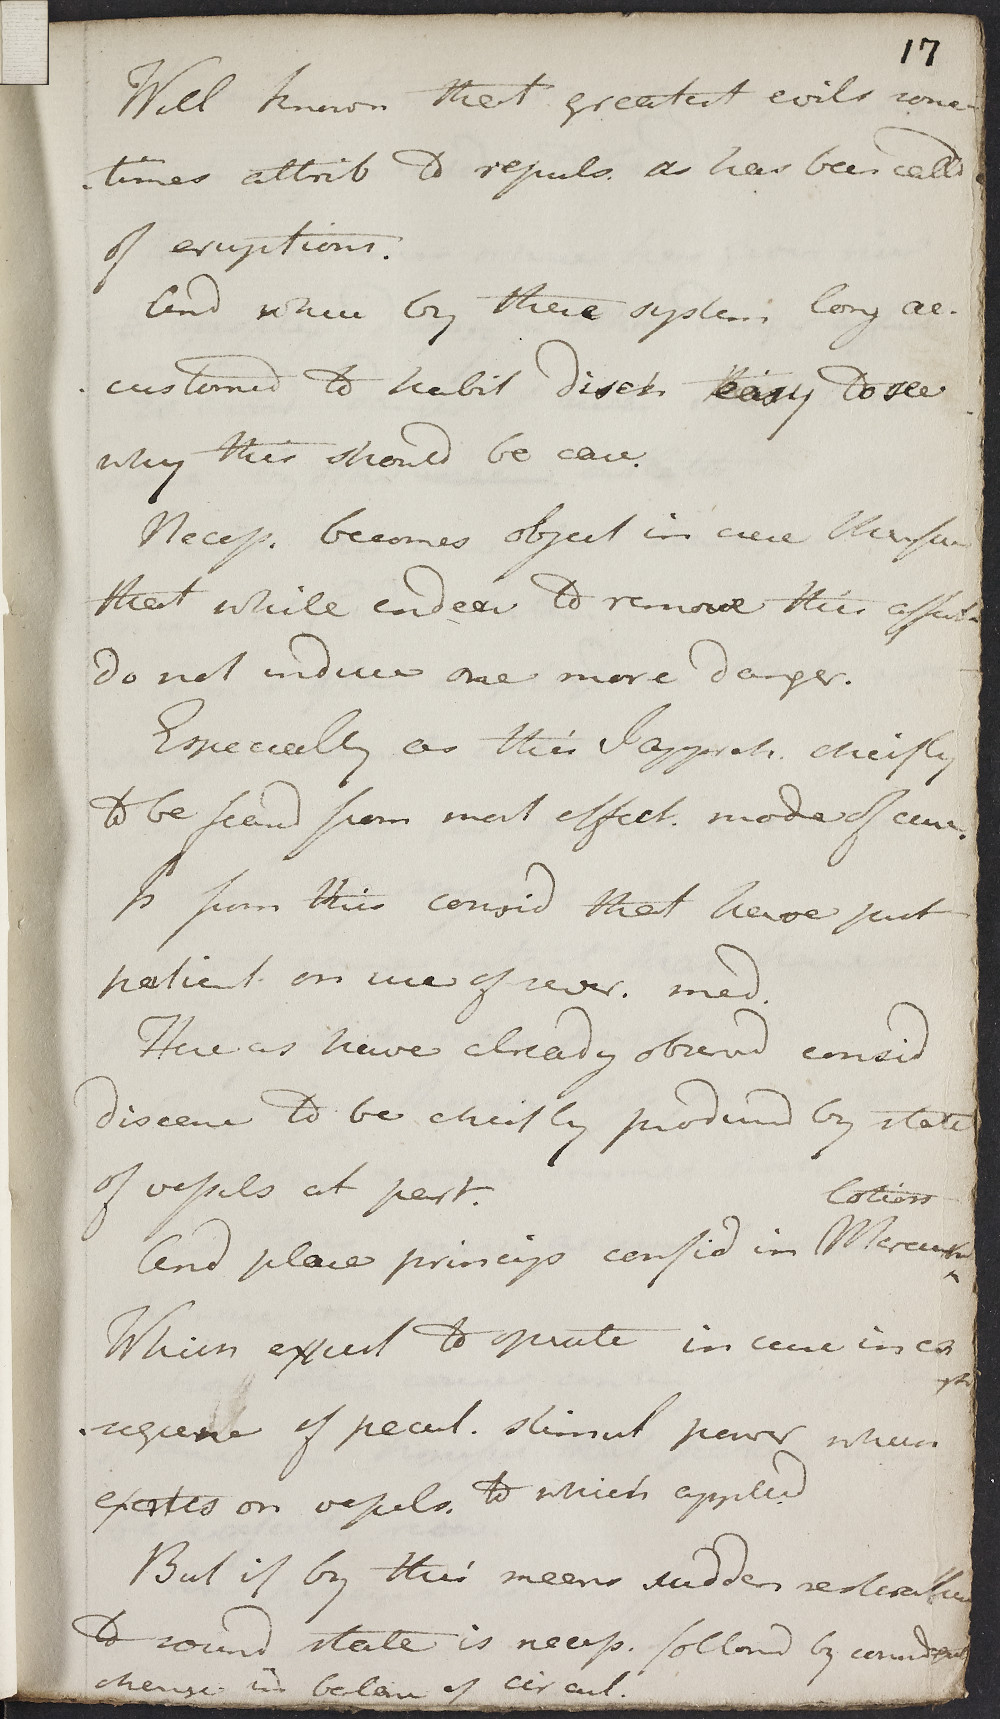 17
Well known that greatest evils some-
-times attrib to repuls. as has been calld
of eruptions.
And when by these system long ac-
-customed to habit disch easy to see
why this should be case.
Necess. becomes object in cure therefore
that while endea to remove this affect
do not induce one more danger.
Especially as this I appreh. cheifly
to be feard from most effect. mode of cure.
Is from this consid that have put
patient on use of sever. med.
Here as have already observd consid
disease to be cheifly producd by state
of vessels at part.
Lotion
And place princip confid in Mercur
Which expect to operate in cure in con
-sequence of pecul. stimul power when
exertes on vessels. to which applied
But if by this means sudden restoration
to sound state is necess. followd by
change in balance of circul.